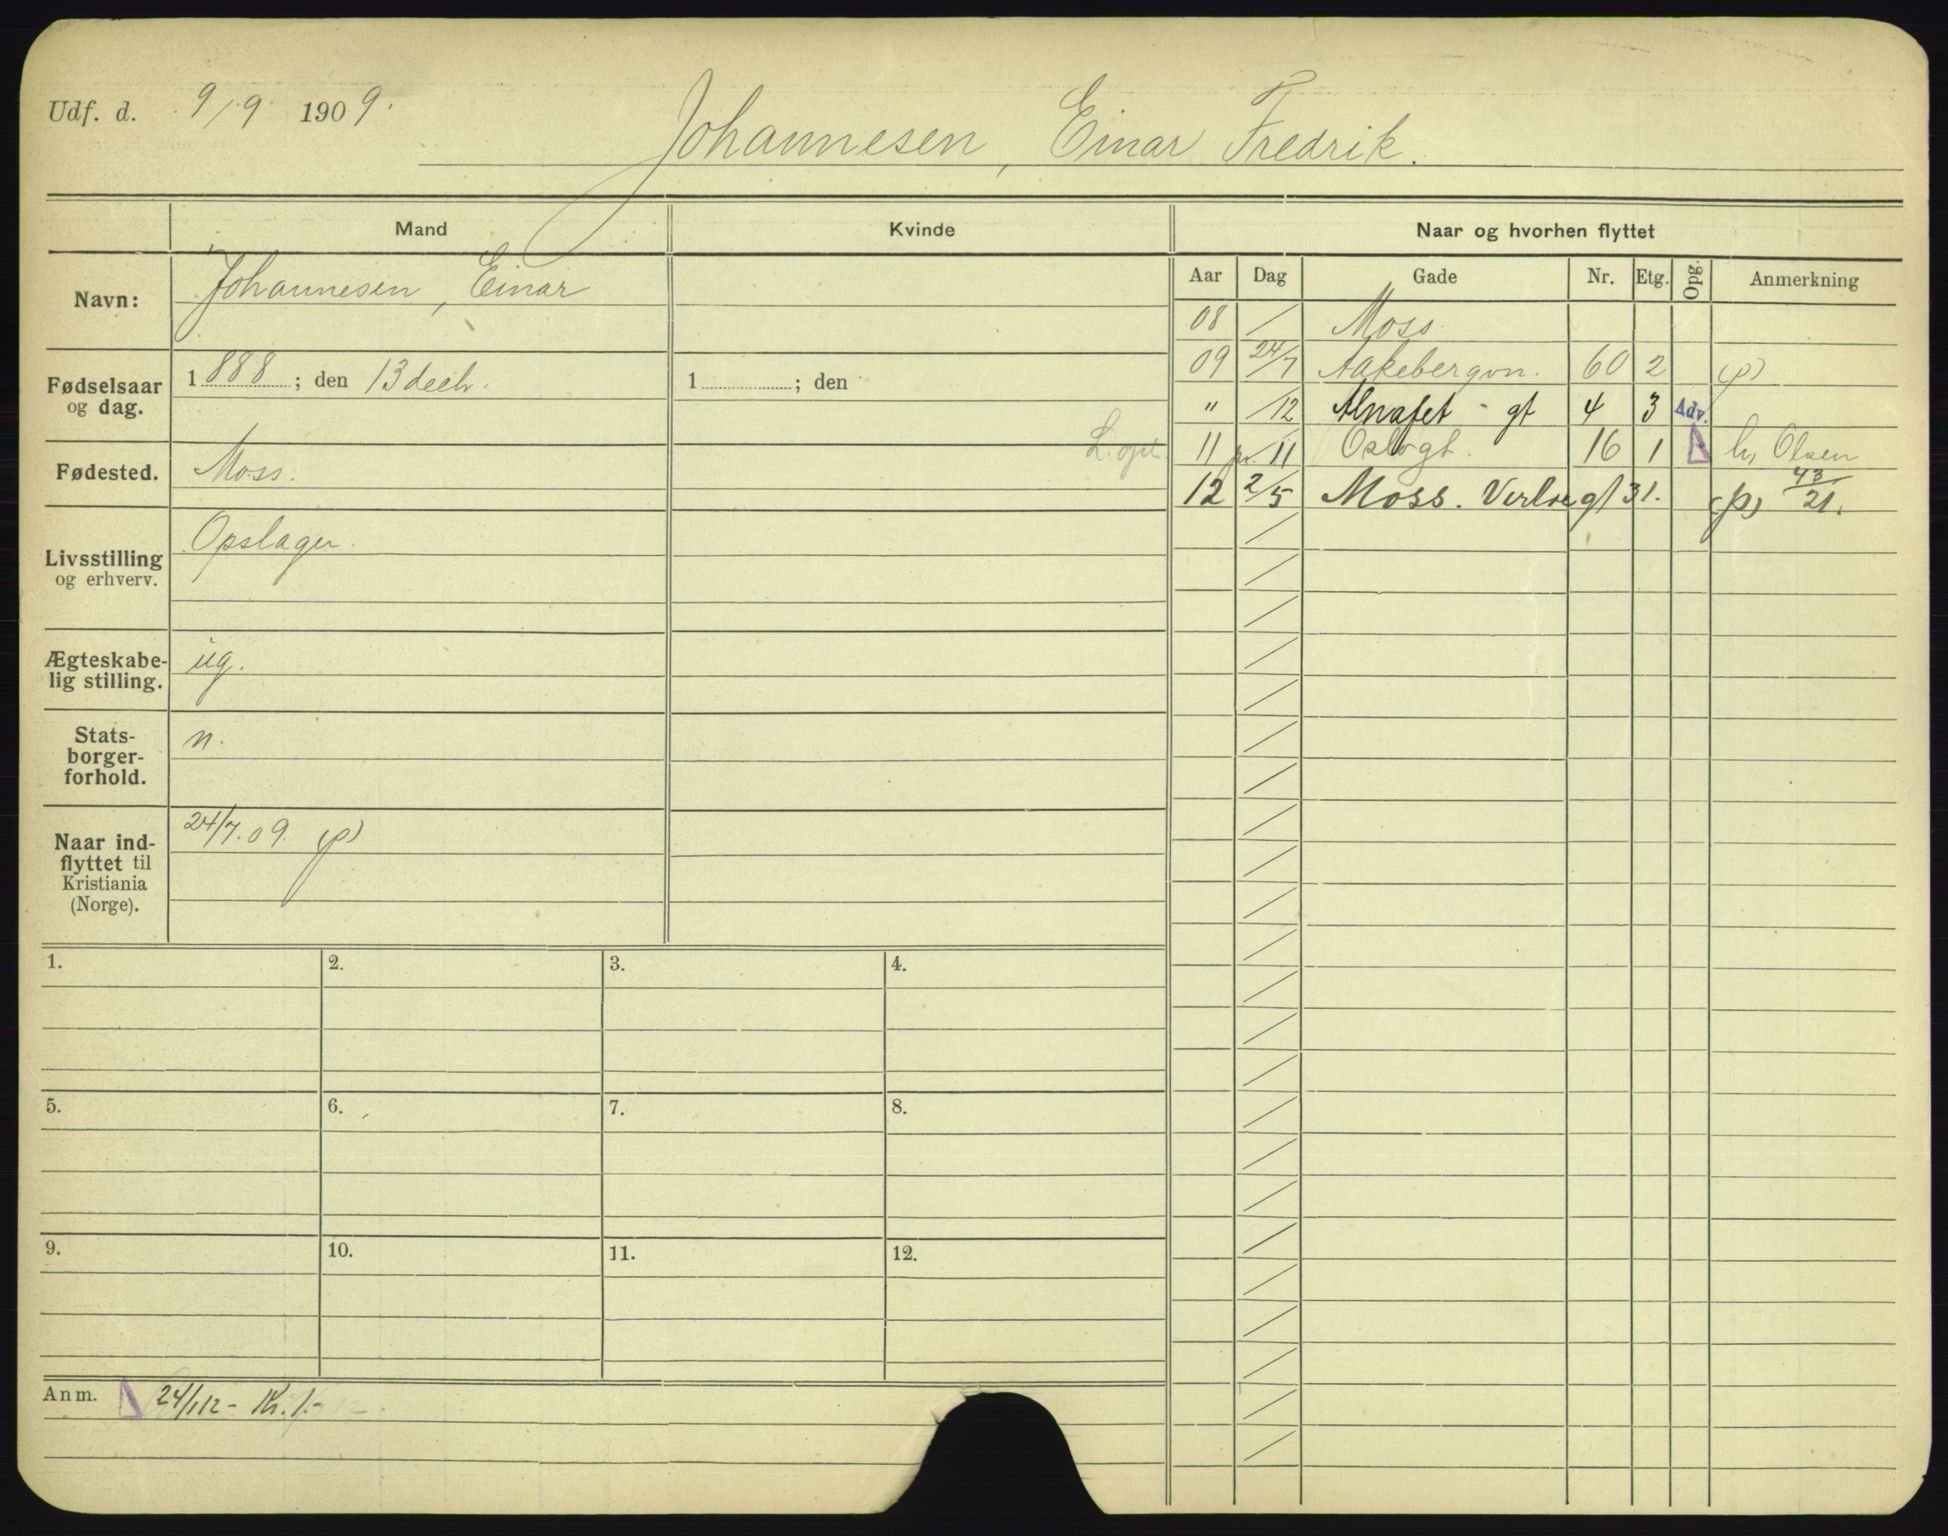 Udf. d. 9/9 1909.
Johannesen, Einar Fredrik.
Mand
Kvinde
Naar og hvorhen flyttet
Navn:
Johannesen, Einar
Fødselsaar og dag.
1888; den 13 decb.
1 ; den
Fødested.
Moss.
Livsstilling og erhverv.
Opslager.
Ægteskabelig stilling.
ug.
Statsborgerforhold.
n.
Naar indflyttet til Kristiania (Norge).
24/7.09. (p)
Aar Dag Gade Nr. Etg. Opg. Anmerkning
08 / Moss.
09 24/7 Aakebergvn. 60 2 (p)
" /12 Alnafet - gt 4 3 Adv.
11 pr. /11 Oslogt. 16 1 h, Olsen
12 2/5 Moss. gt 31. (p) 43/21.
1. 2. 3. 4.
5. 6. 7. 8.
9. 10. 11. 12.
Anm. 24/1 12 - Kr. 1.-